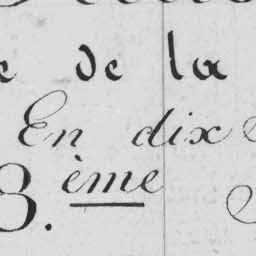 de la
En dix
3.ème